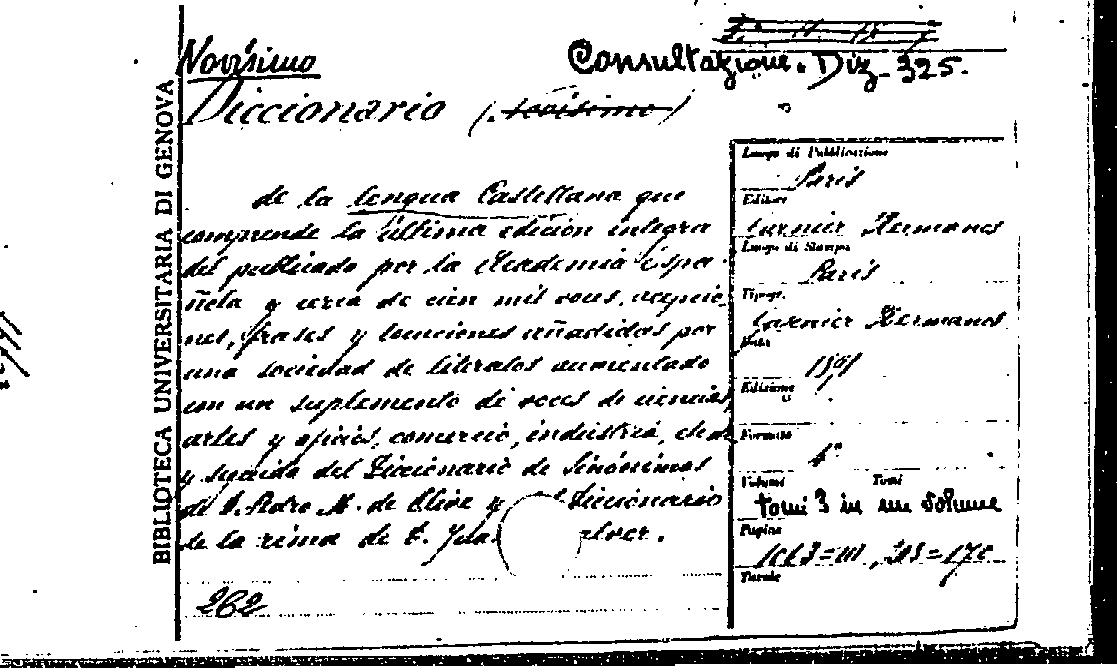 Novísimo
Consultazione. Diz. 325.
Diccionario (novísimo)
BIBLIOTECA UNIVERSITARIA DI GENOVA
de la lengua Castellana que
comprende la última edición íntegra
del publicado por la Academia Espa-
ñola y cerca de cien mil voces, acepcio-
nes, frases y locuciones añadidas por
una sociedad de literatos aumentado
con un suplemento de voces de ciencias,
artes y oficios, comercio, industria,
y seguido del Diccionario de Sinónimos
de D. Pedro M. de Olive y Diccionario
de la rima de D.
262
Luogo di Pubblicazione
Paris
Editore
Garnier Hermanos
Luogo di Stampa
Paris
Tipogr.
Garnier Hermanos
Data
Edizione
Formato
4°
Volumi Tomi
tomi 3 in un volume
Pagine
Tavole